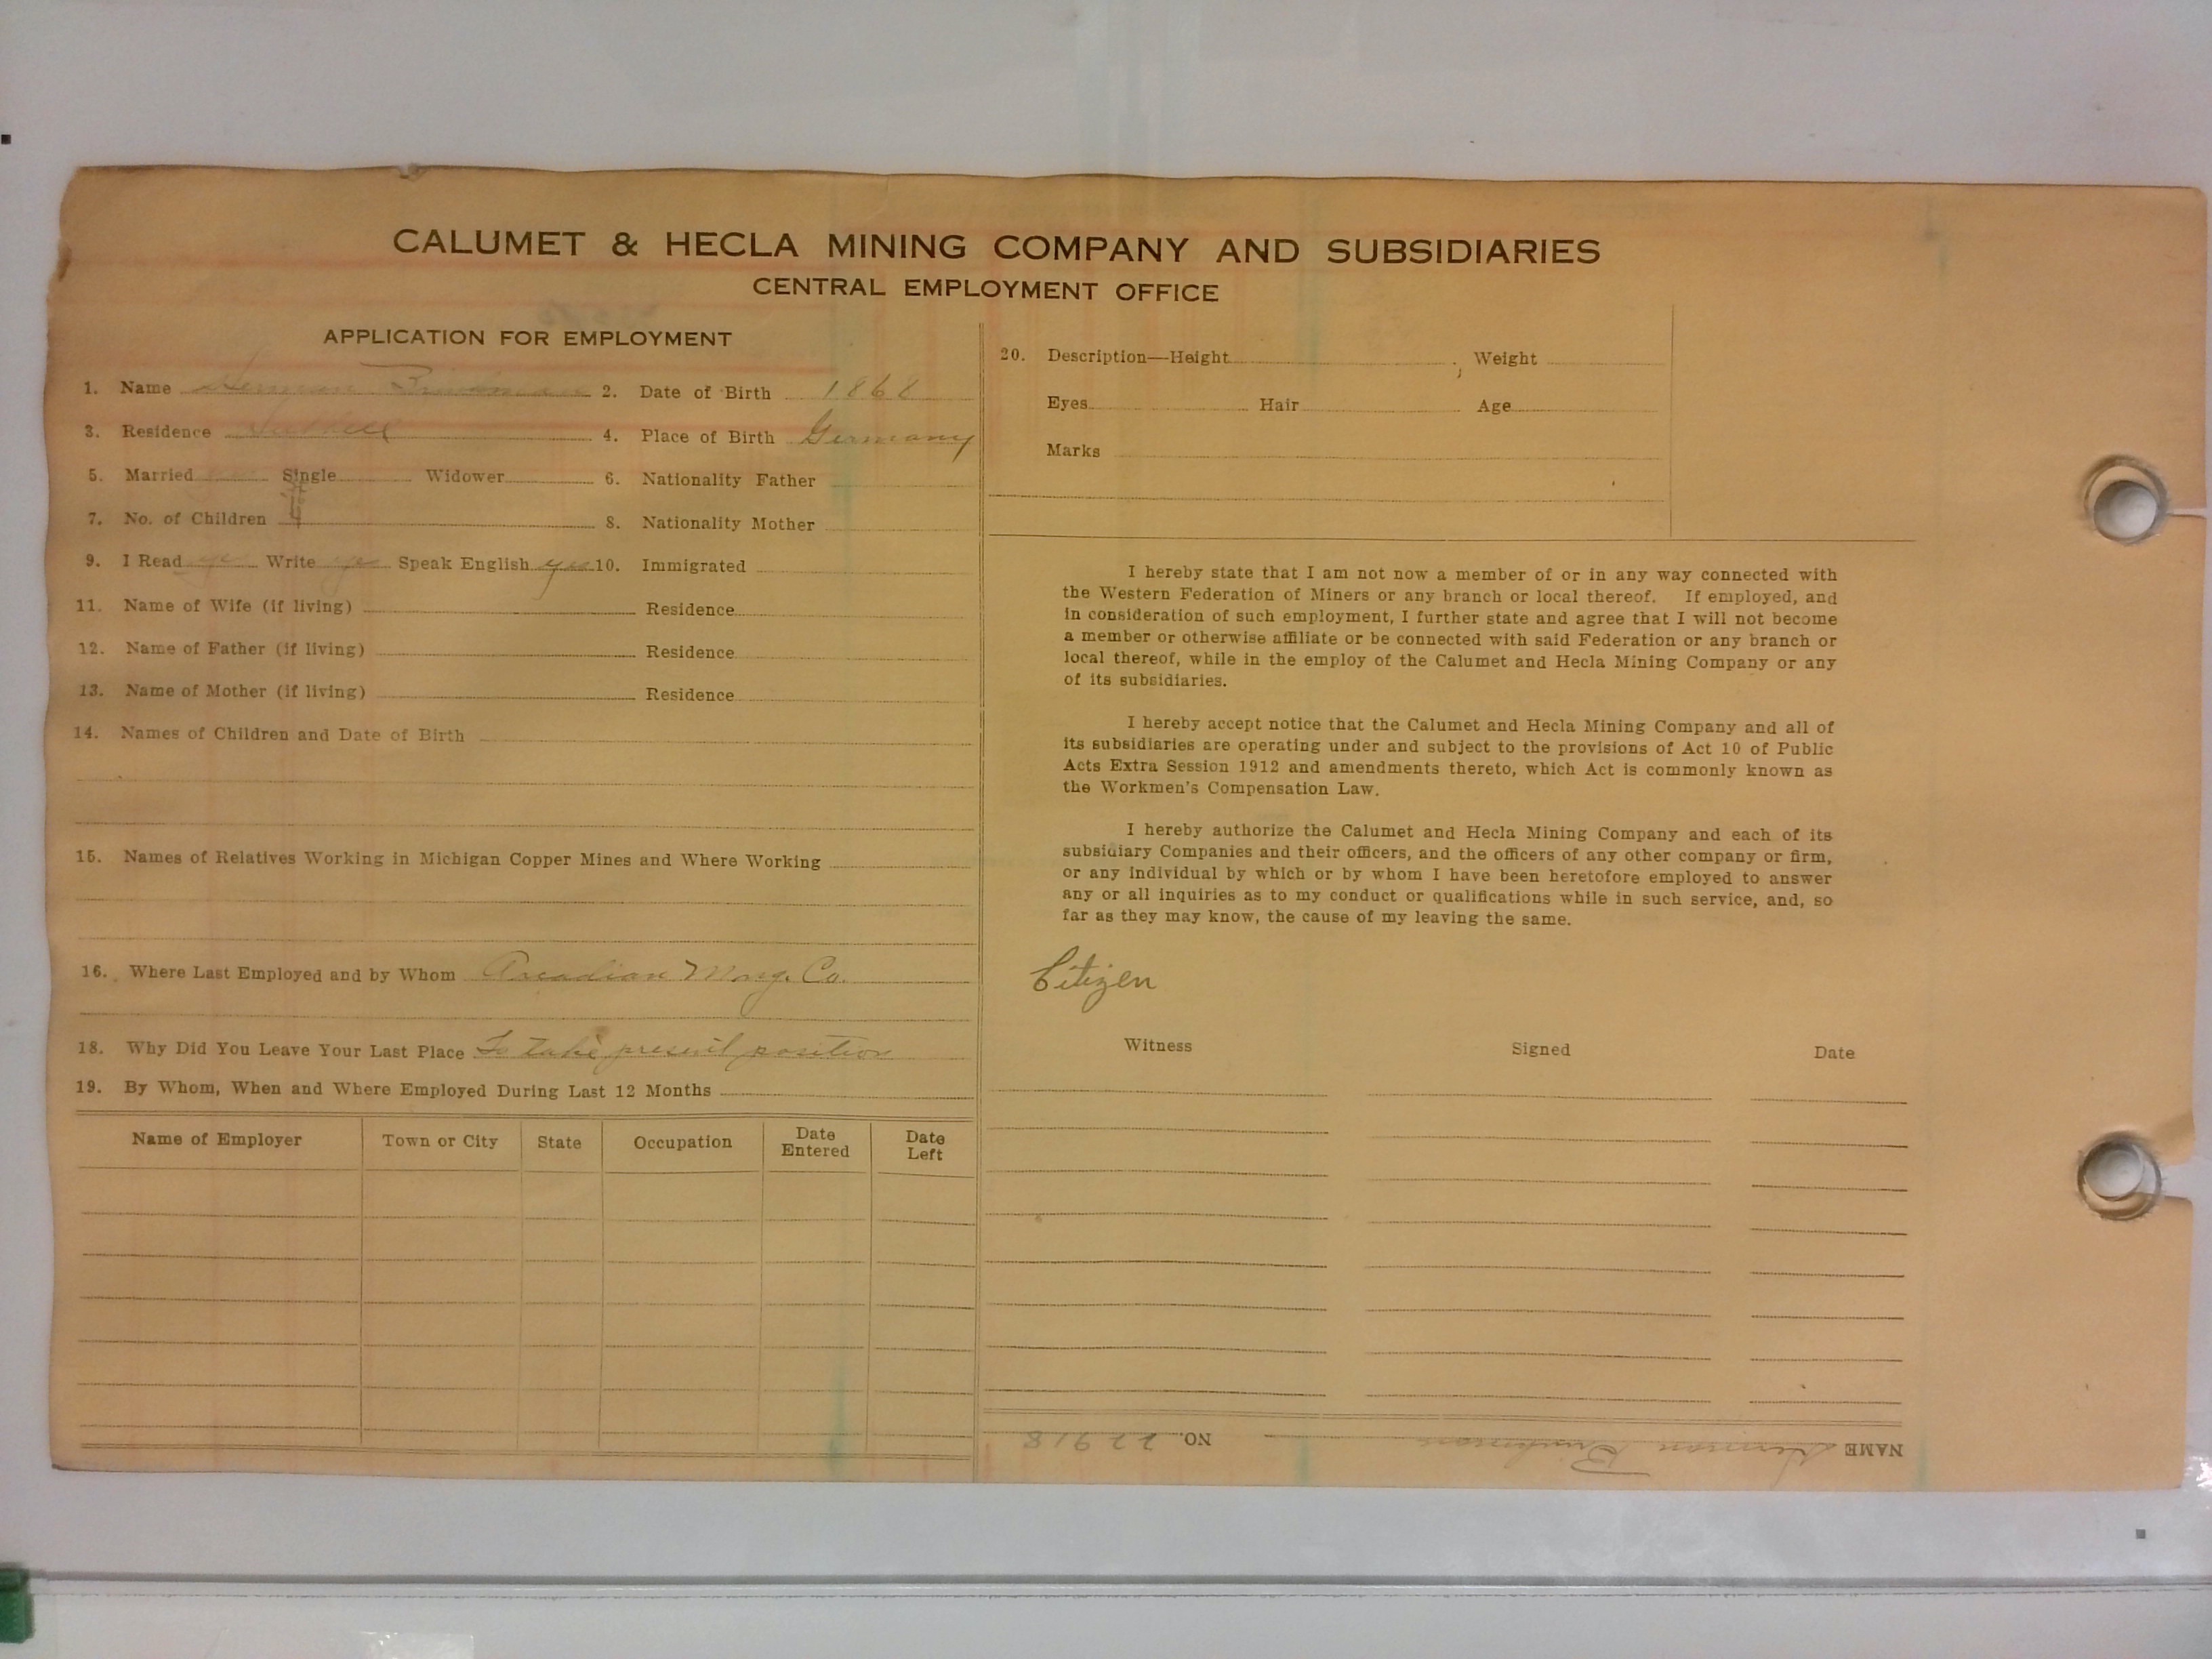 CALUMET & HECLA MINING COMPANY AND SUBSIDIARIES
CENTRAL EMPLOYMENT OFFICE
APPLICATION FOR EMPLOYMENT
1. Name Herman 2. Date of Birth 1868
3. Residence 4. Place of Birth Germany
5. Married Single Widower 6. Nationality Father
7. No. of Children 4 8. Nationality Mother
9. I Read yes Write yes Speak English yes 10. Immigrated
11. Name of Wife (if living) Residence
12. Name of Father (if living) Residence
13. Name of Mother (if living) Residence
14. Names of Children and Date of Birth
15. Names of Relatives Working in Michigan Copper Mines and Where Working
16. Where Last Employed and by Whom Arcadian Mng. Co.
18. Why Did You Leave Your Last Place To take present position
19. By Whom, When and Where Employed During Last 12 Months
Name of Employer Town or City State Occupation Date Entered Date Left
20. Description—Height ; Weight
Eyes Hair Age
Marks
I hereby state that I am not now a member of or in any way connected with
the Western Federation of Miners or any branch or local thereof. If employed, and
in consideration of such employment, I further state and agree that I will not become
a member or otherwise affiliate or be connected with said Federation or any branch or
local thereof, while in the employ of the Calumet and Hecla Mining Company or any
of its subsidiaries.
I hereby accept notice that the Calumet and Hecla Mining Company and all of
its subsidiaries are operating under and subject to the provisions of Act 10 of Public
Acts Extra Session 1912 and amendments thereto, which Act is commonly known as
the Workmen's Compensation Law.
I hereby authorize the Calumet and Hecla Mining Company and each of its
subsidiary Companies and their officers, and the officers of any other company or firm,
or any individual by which or by whom I have been heretofore employed to answer
any or all inquiries as to my conduct or qualifications while in such service, and, so
far as they may know, the cause of my leaving the same.
Citizen
Witness Signed Date
NAME Herman NO. 22918